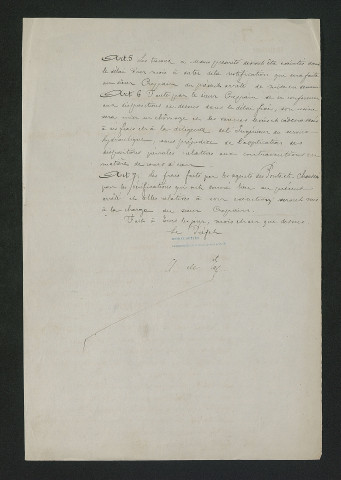 Art 5 Les travaux ci-dessus prescrits devront être exécutés dans
le délai d'un mois à dater de la notification qui sera faite
au sieur du présent arrêté de mise en demeure
Art 6 Faute par le sieur de se conformer
aux dispositions ci-dessus dans le délai fixé, son usine
sera mise en chômage et les vannes seront cadenassées
à ses frais et à la diligence de l'Ingénieur du service
hydraulique, sans préjudice de l'application des
dispositions pénales relatives aux contraventions en
matière de cours d'eau
Art 7. Les frais faits par les agents des Ponts et Chaussées
pour les vérifications qui ont donné lieu au présent
arrêté et celles relatives à son exécution seront mis
à la charge du sieur
Faits à Tours les jour, mois et an que dessus
Le Préfet